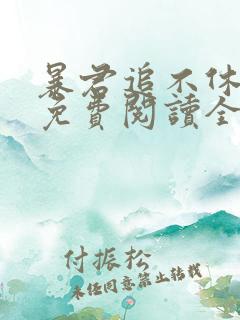 暴君追不休
免費閱讀全
付振松
未经同意禁止转载